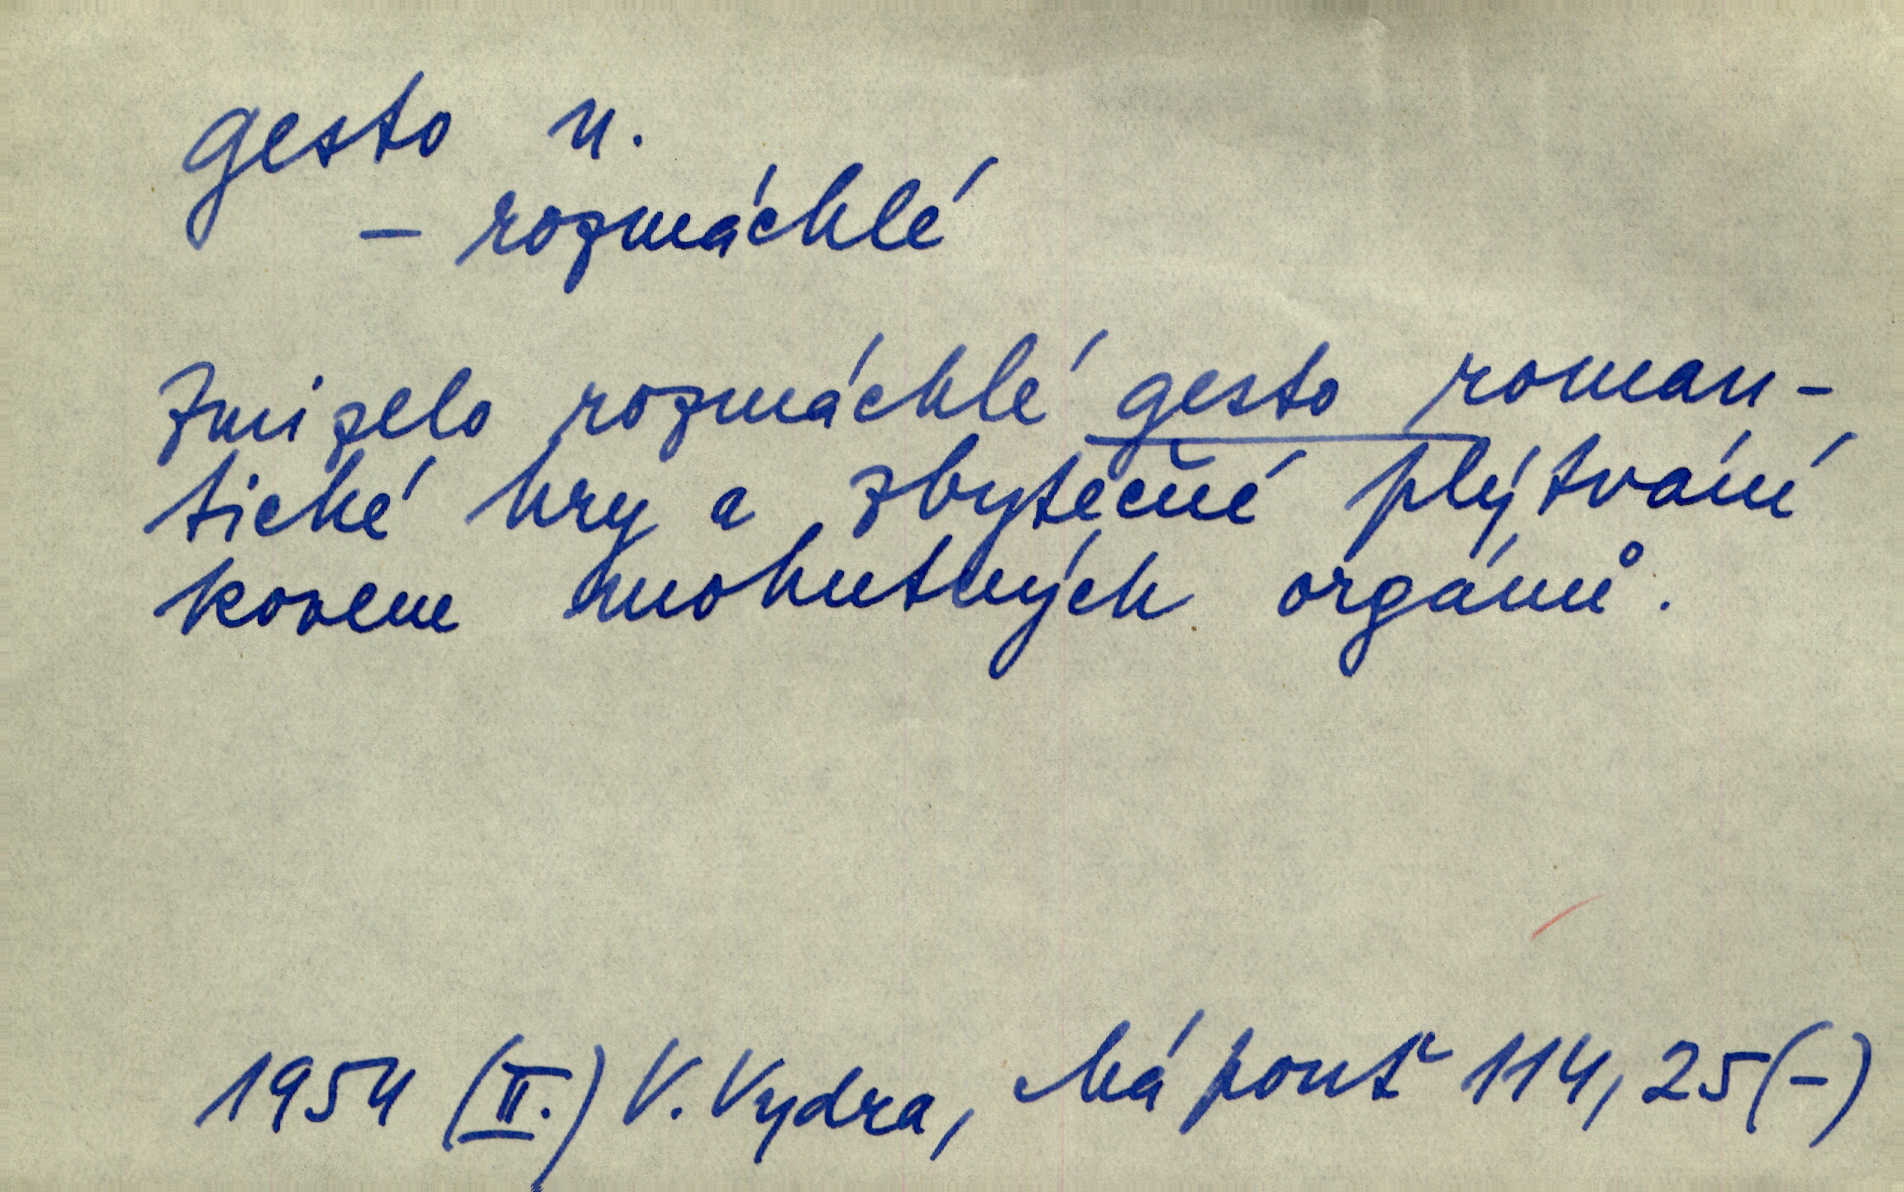 gesto n.
– rozmáchlé
Zmizelo rozmáchlé gesto roman-
tické hry a zbytečné plýtvání
kovem mohutných orgánů.
1954 (II.) V. Vydra, Má pouť 114, 25 (–)